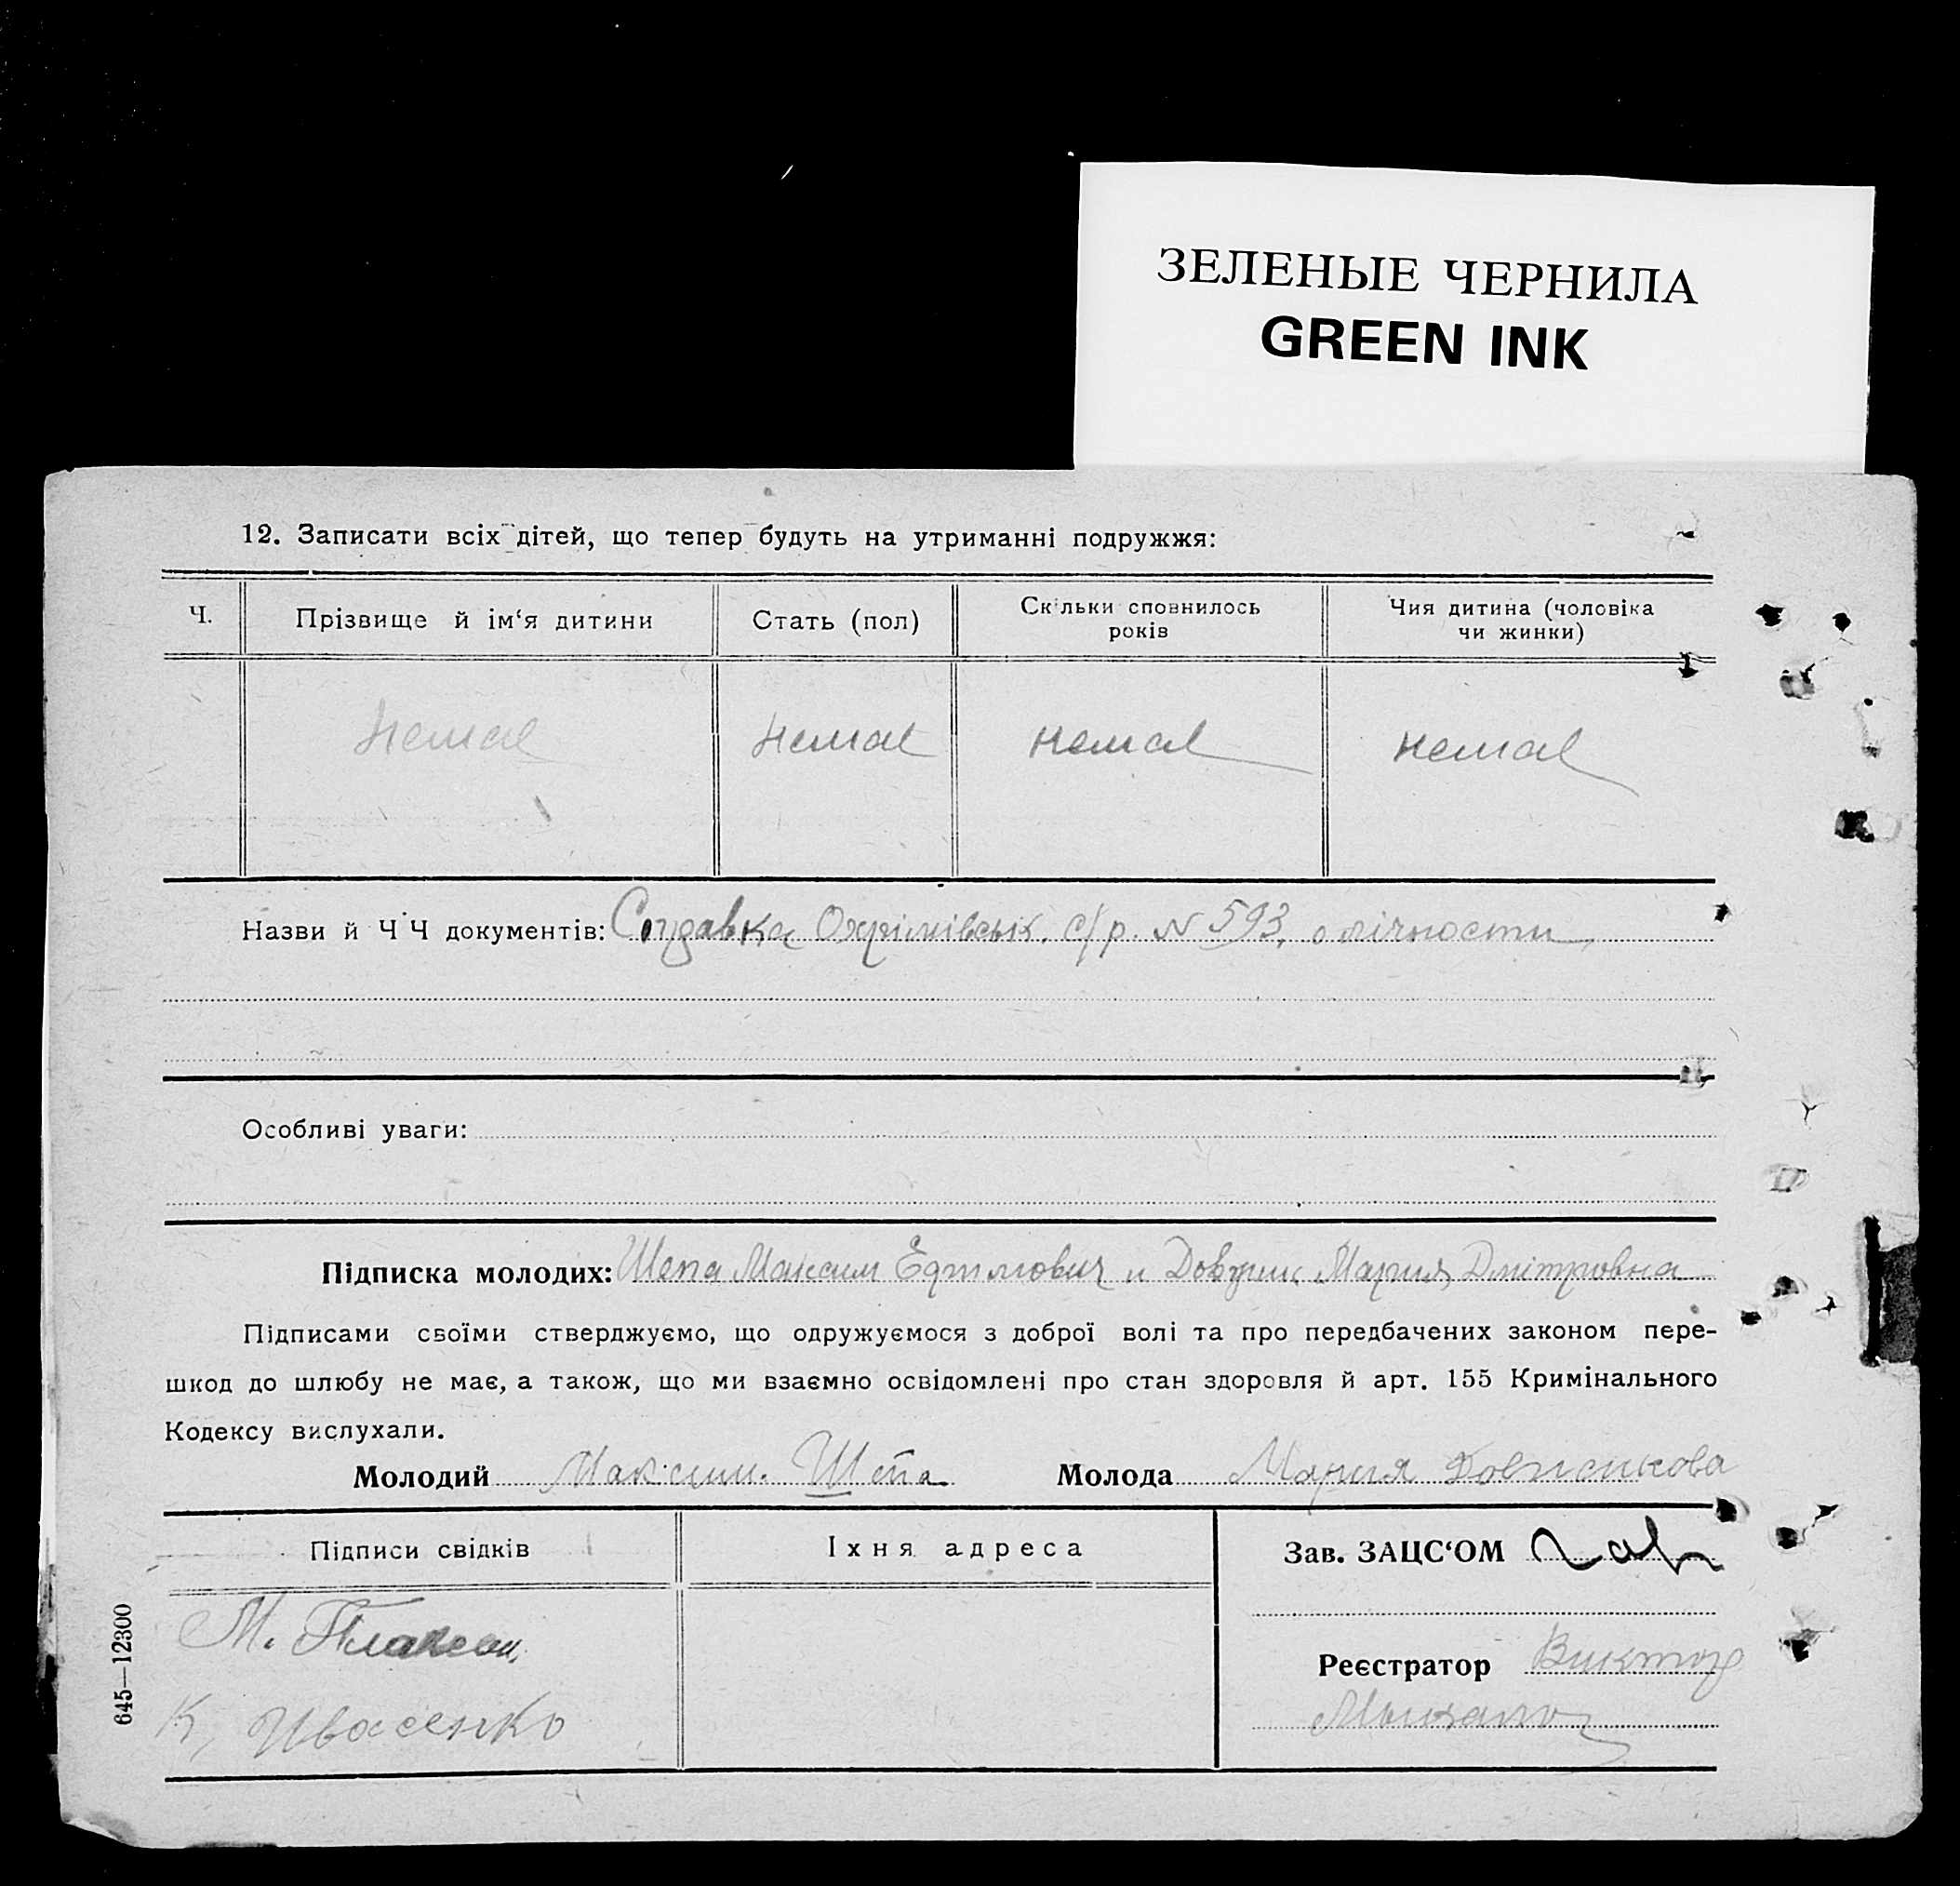 ЗЕЛЕНЫЕ ЧЕРНИЛА
GREEN INK
12. Записати всіх дітей, що тепер будуть на утриманні подружжя:
Ч. Прізвище й ім‘я дитини Стать (пол) Скільки сповнилось років Чия дитина (чоловіка чи жинки)
немає немає немає немає
Назви й Ч Ч документів: Справка Охрімівськ. с/р. N 593, о лічности
Особливі уваги:
Підписка молодих: Шепа Максим и Мария Дмітровна
Підписами своїми стверджуємо, що одружуємося з доброї волі та про передбачених законом пере-
шкод до шлюбу не має, а також, що ми взаємно освідомлені про стан здоровля й арт. 155 Кримінального
Кодексу вислухали.
Молодий Максим. Шепа Молода Мария
Підписи свідків Іхня адреса Зав. ЗАЦС‘ОМ
М.
Реєстратор Виктор
К, Ивасенко
645—12300